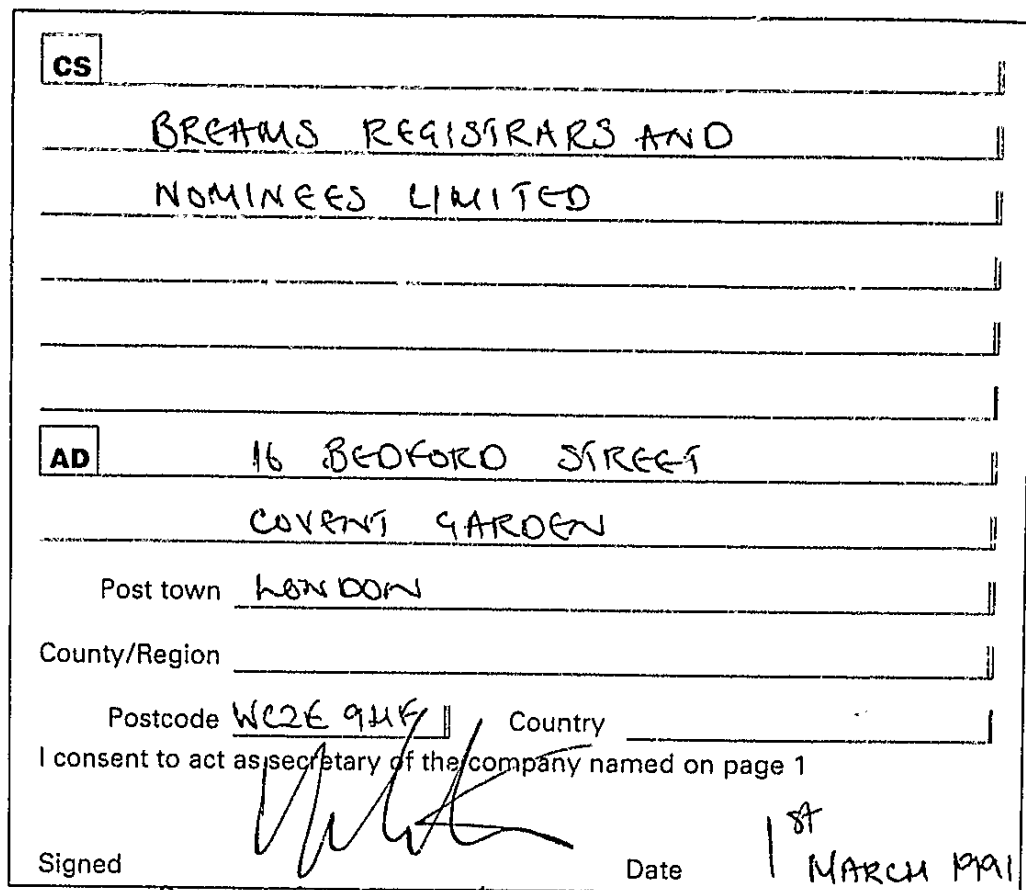 CS
BREAMS REGISTRARS AND
NOMINEES LIMITED
AD 16 BEDFORD STREET
COVENT GARDEN
Post town LONDON
County/Region
Postcode WC2E 9HF Country
I consent to act as secretary of the company named on page 1
Signed Date 1st MARCH 1991